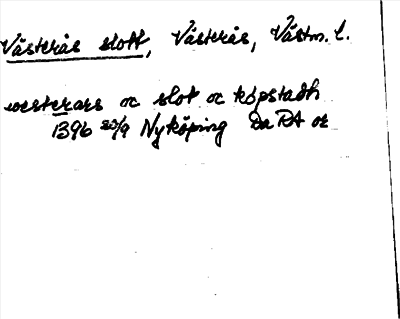 Västerås slott, Västerås, Västm. l.
westerars oc slot oc köpstadh
1396 20/9 Nyköping Da RA or